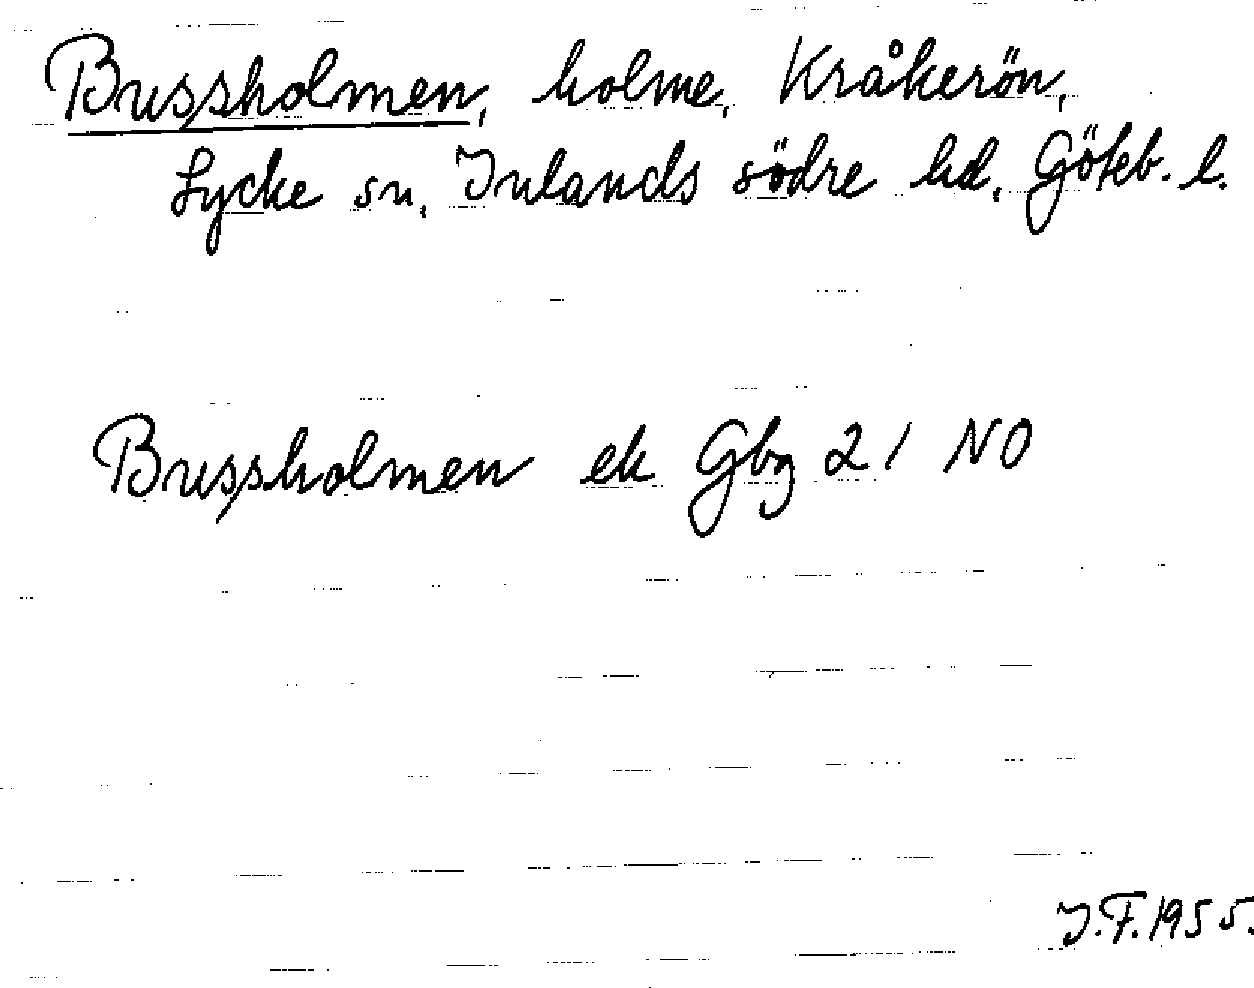 Bussholmen, holme, Kråkerön,
Lycke sn, Inlands södre hd, Göteb. l.
Bussholmen ek Gbg 21 NO
J.F. 1955.